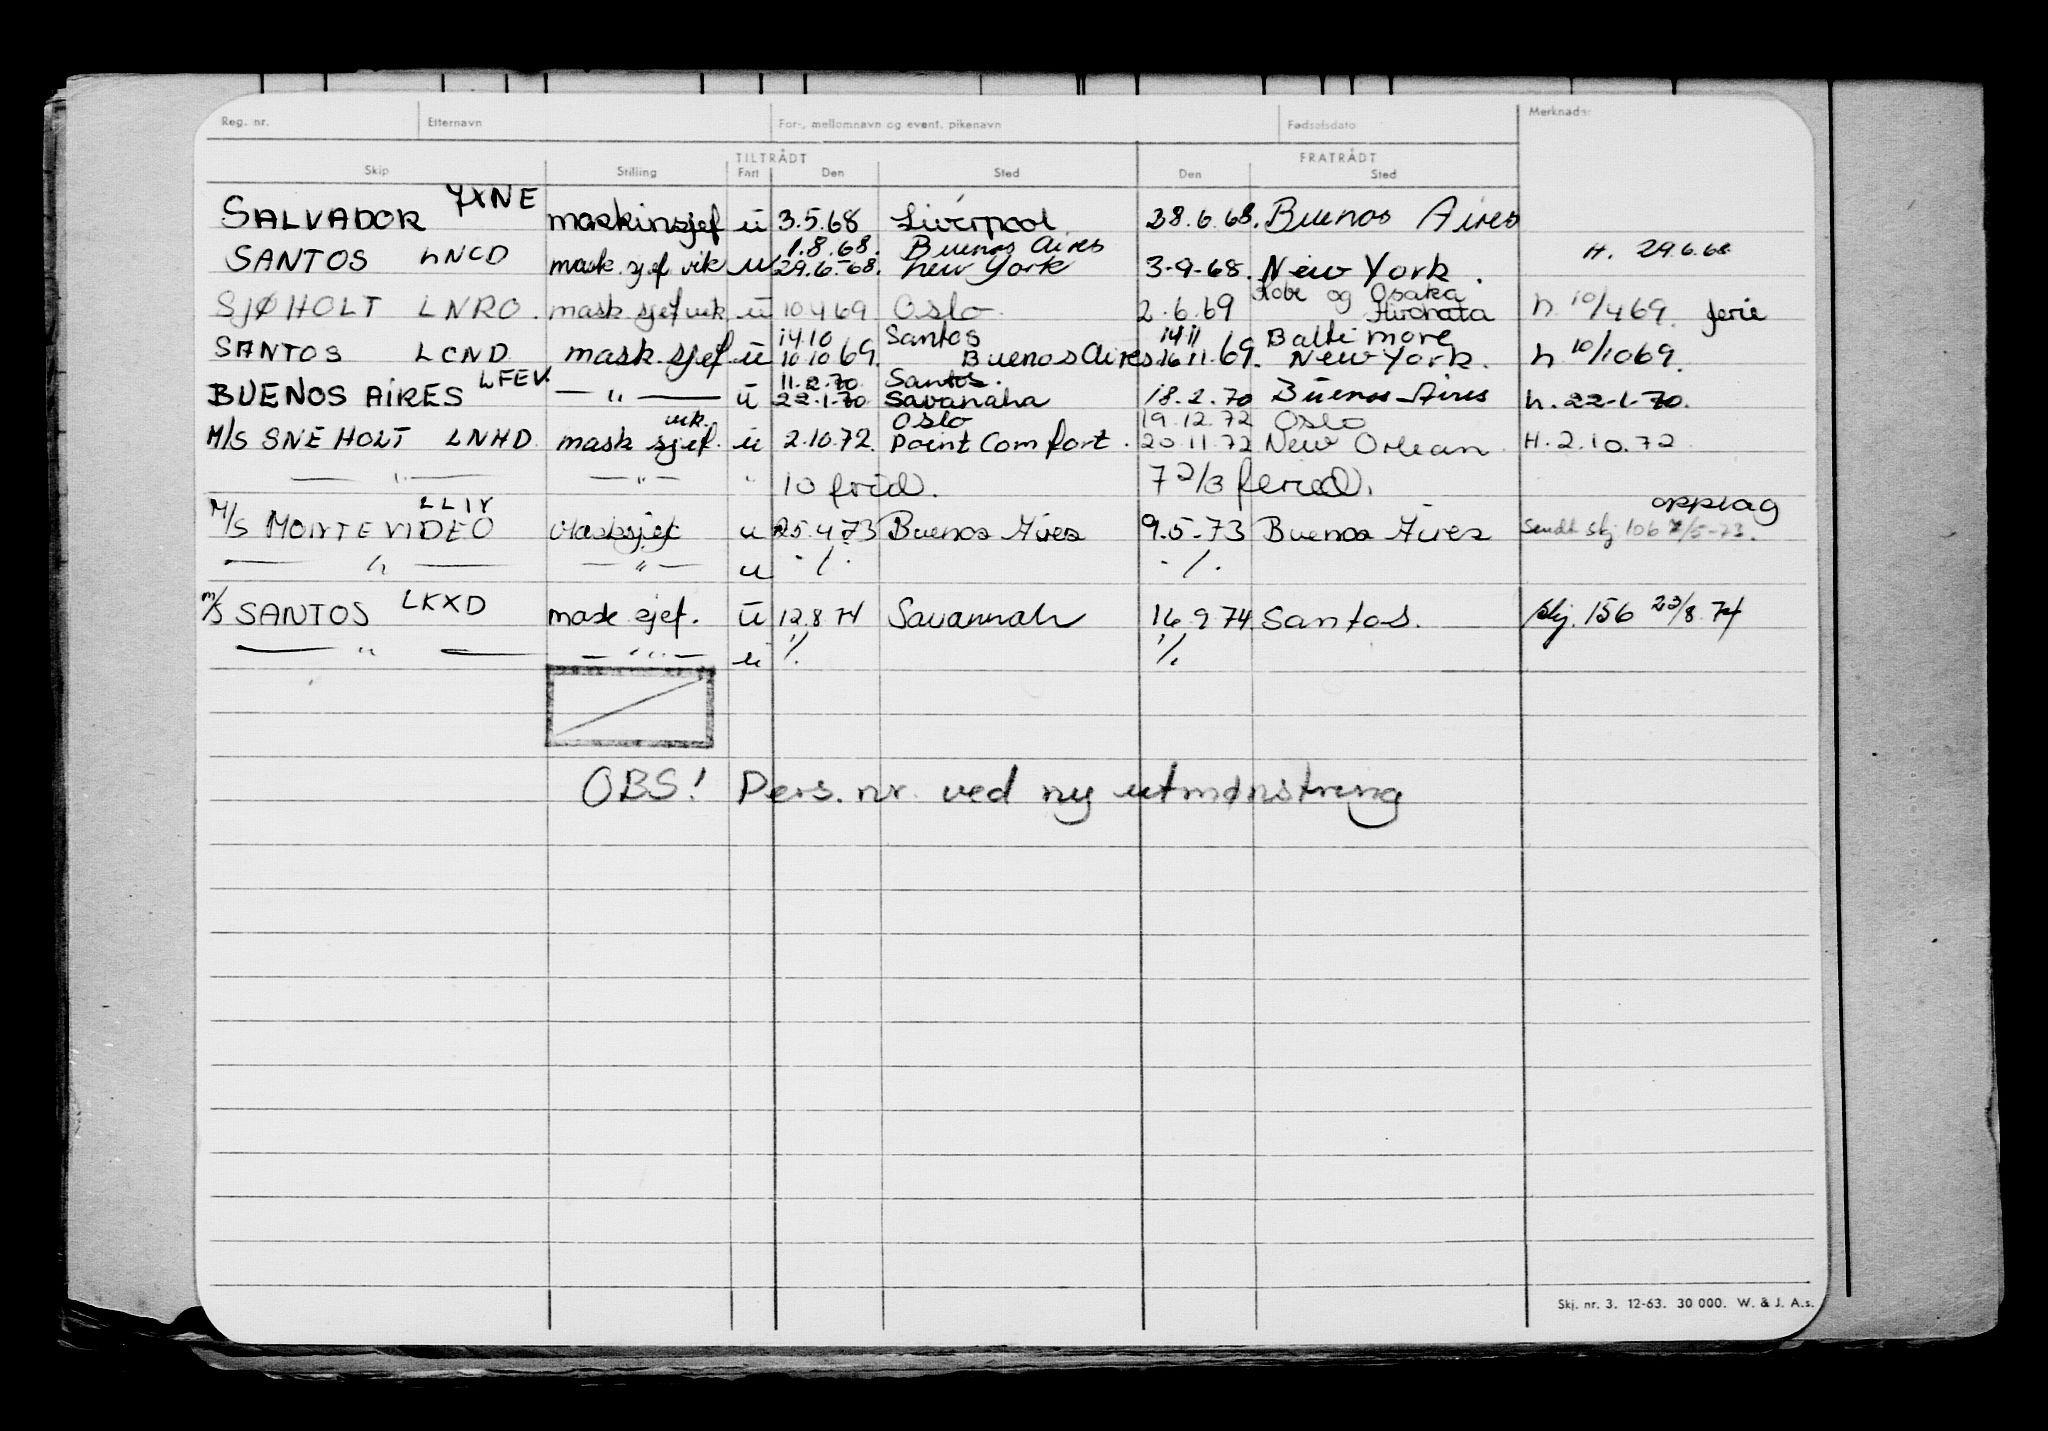 Reg. nr. Etternavn For-, mellomnavn og event. pikenavn Fødselsdato Merknader
TILTRÅDT FRATRÅDT
Skip Stilling Fart Den Sted Den Sted
SALVADOR JXNE maskinsjef u 3.5.68 Liverpool 28.6.68. Buenos Aires
1.8.68. Buenos Aires
SANTOS LNCD mask. sjef vik u 29.6.-68. New York 3-9-68. New York. H. 29.6.68
Kobe og Osaka
SJØHOLT LNRO. mask sjef vik u 10 4 69 Oslo 2.6.69 Hirohata h 10/4 69. ferie
14 10 Santos 14 11 Baltimore
SANTOS LCND mask. sjef u 10 10 69. Buenos Aires 16 11.69. New York. h 10/10 69.
11.2.70 Santos.
BUENOS AIRES LFEV. — " — u 22-1-70 Savanaha 18.2.70 Buenos-Aires h. 22-1-70.
vik. Oslo 19.12.72 Oslo
M/S SNEHOLT LNHD mask sjef. u 2.10.72. Point Comfort. 20.11.72 New Orlean H. 2.10.72
— " — — " — " 10 frid. 7 2/3 feried.
LLIV opplag
M/S MONTEVIDEO Masksjef u 25.4.73 Buenos Aires 9.5.-73 Buenos Aires Sendt skj 106 /5-73.
— " — — " — u . / . . / .
M/S SANTOS LKXD mask sjef. u 12.8 74 Savannah 16.9 74 Santos. skj. 156 23/8. 74
— " — — " — u ./. ./.
OBS! Pers. nr. ved ny utmønstring
Skj. nr. 3. 12-63. 30 000. W. & J. A.s.